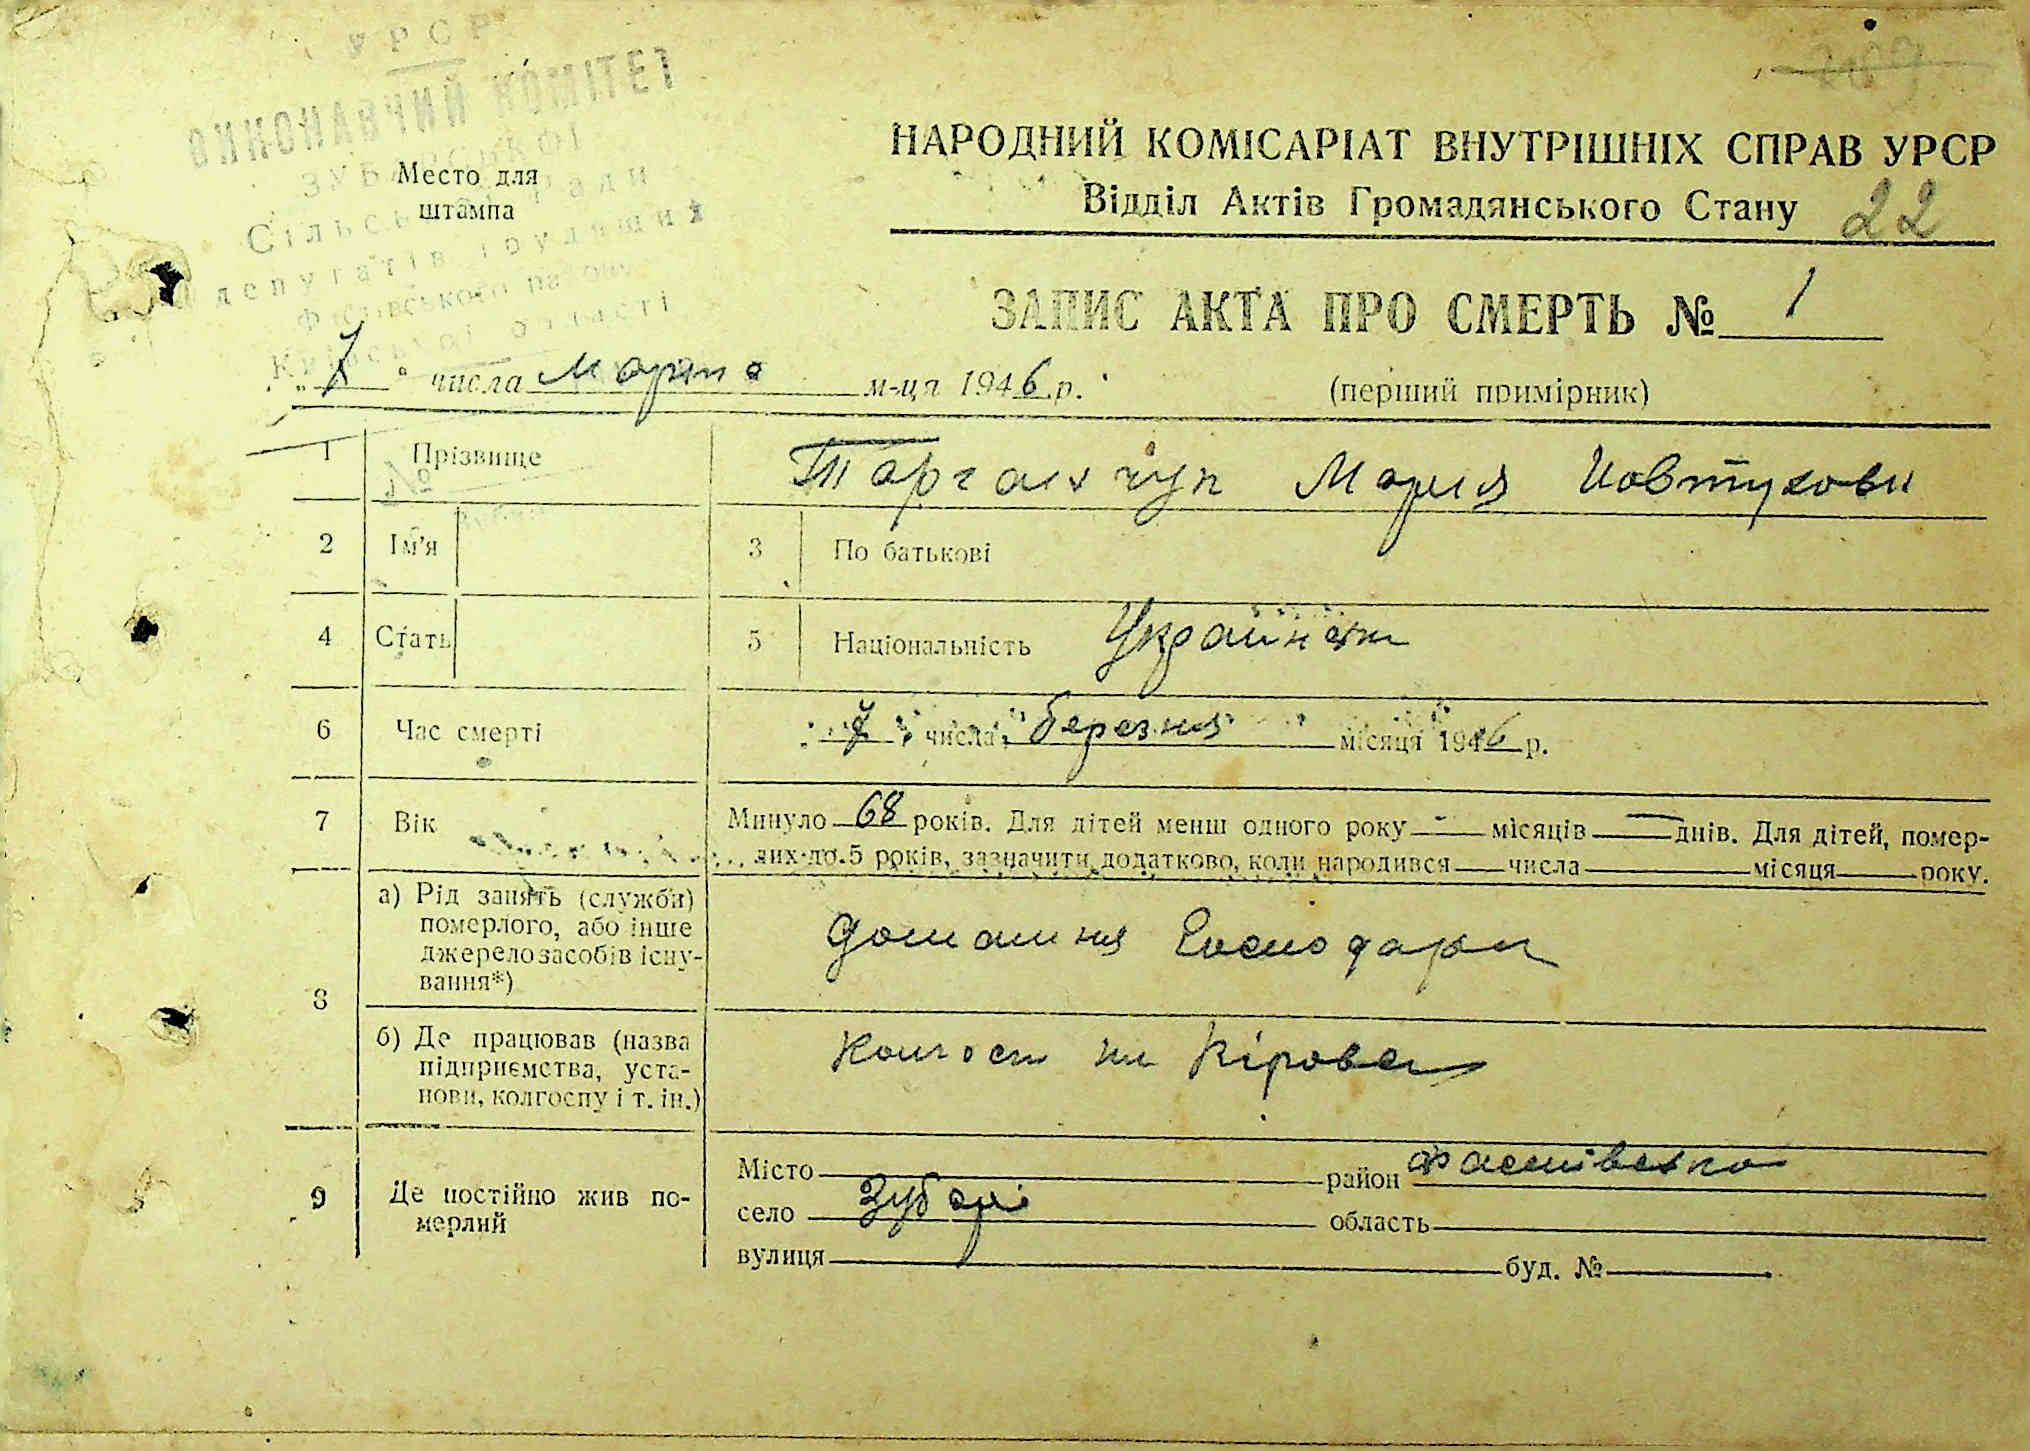 УРСР
ВИКОНАВЧИЙ КОМІТЕТ
Место для
штампа
депутатів трудящих
Фастівського району
Київської області
209
НАРОДНИЙ КОМІСАРІАТ ВНУТРІШНІХ СПРАВ УРСР
Відділ Актів Громадянського Стану 22
ЗАПИС АКТА ПРО СМЕРТЬ № 1
„7" числа Марта м-ця 1946 р. (перший примірник)
1 Прізвище Тарганчук Мария
2 Ім'я 3 По батькові
4 Стать 5 Національність Українка
6 Час смерті „7" числа березня місяця 1946 р.
7 Вік Минуло 68 років. Для дітей менш одного року - місяців — днів. Для дітей, помер-
лих до 5 років, зазначити додатково, коли народився числа місяця року.
8 а) Рід занять (служби) померлого, або інше джерело засобів існування*) домашня Господарка
б) Де працював (назва підприємства, установи, колгоспу і т. ін.) Колгосп им Кірова
9 Де постійно жив померлий
Місто район Фастівська
село Зубарі область
вулиця буд. №